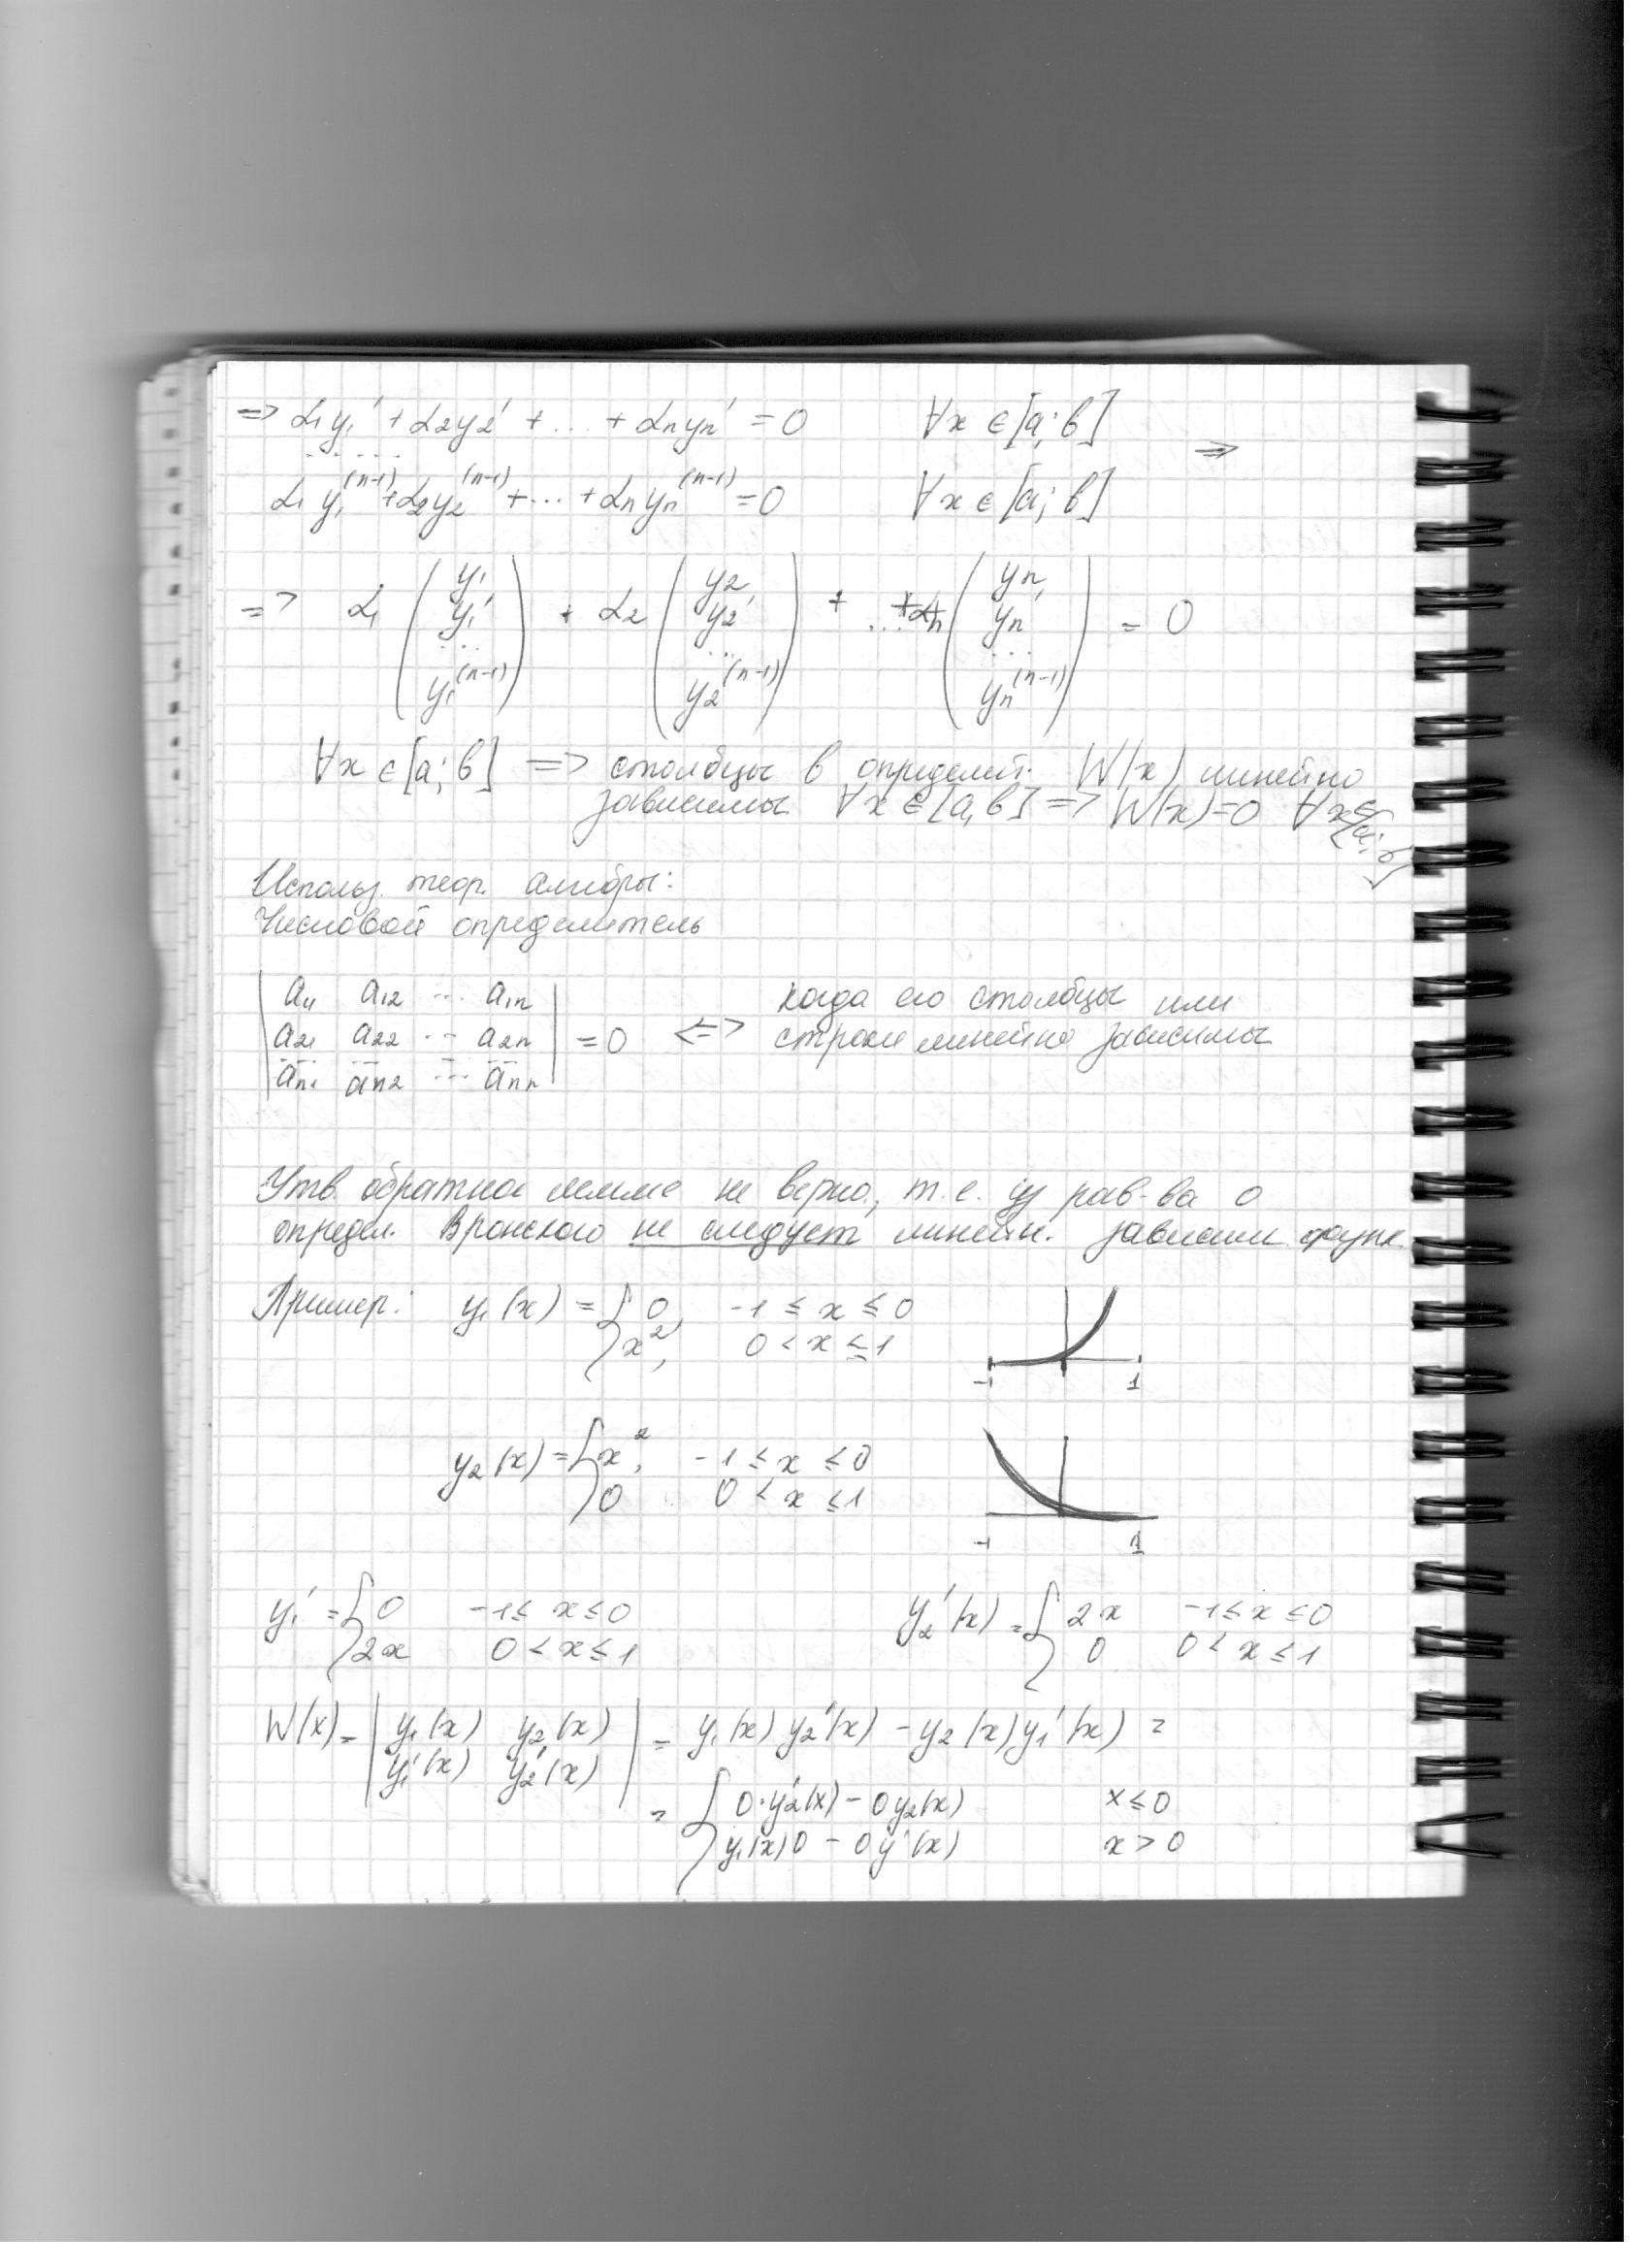 => α₁y₁' + α₂y₂' + ... + αₙyₙ' = 0 ∀x ∈ [a; b] =>
. . . . .
α₁y₁⁽ⁿ⁻¹⁾ + α₂y₂⁽ⁿ⁻¹⁾ + ... + αₙyₙ⁽ⁿ⁻¹⁾ = 0 ∀x ∈ [a; b]
=> α₁ (y₁ y₁' ... y₁⁽ⁿ⁻¹⁾) + α₂ (y₂ y₂' ... y₂⁽ⁿ⁻¹⁾) + ... + αₙ (yₙ yₙ' ... yₙ⁽ⁿ⁻¹⁾) = 0
∀x ∈ [a; b] => столбцы в определит. W(x) линейно
зависимы ∀x ∈ [a, b] => W(x)=0 ∀x ∈ [a; b]
Использ. теор. алгебры:
Числовой определитель
a₁₁ a₁₂ ... a₁ₙ
a₂₁ a₂₂ ... a₂ₙ = 0 <=> когда его столбцы или
... ... ... ... строки линейно зависимы
aₙ₁ aₙ₂ ... aₙₙ
Утв. обратное лемме не верно, т.е. из рав-ва 0
определ. Вронского не следует линейн. зависим. функ.
Пример: y₁(x) = { 0, -1 ≤ x ≤ 0
x², 0 < x ≤ 1
-1 1
y₂(x) = { x², -1 ≤ x ≤ 0
0 0 < x ≤ 1
-1 1
y₁' = { 0 -1 ≤ x ≤ 0 y₂'(x) = { 2x -1 ≤ x ≤ 0
2x 0 < x ≤ 1 0 0 < x ≤ 1
W(x) = | y₁(x) y₂(x) | = y₁(x) y₂'(x) - y₂(x) y₁'(x) =
| y₁'(x) y₂'(x) |
= { 0·y₂'(x) - 0y₂(x) x ≤ 0
y₁(x)0 - 0y'(x) x > 0